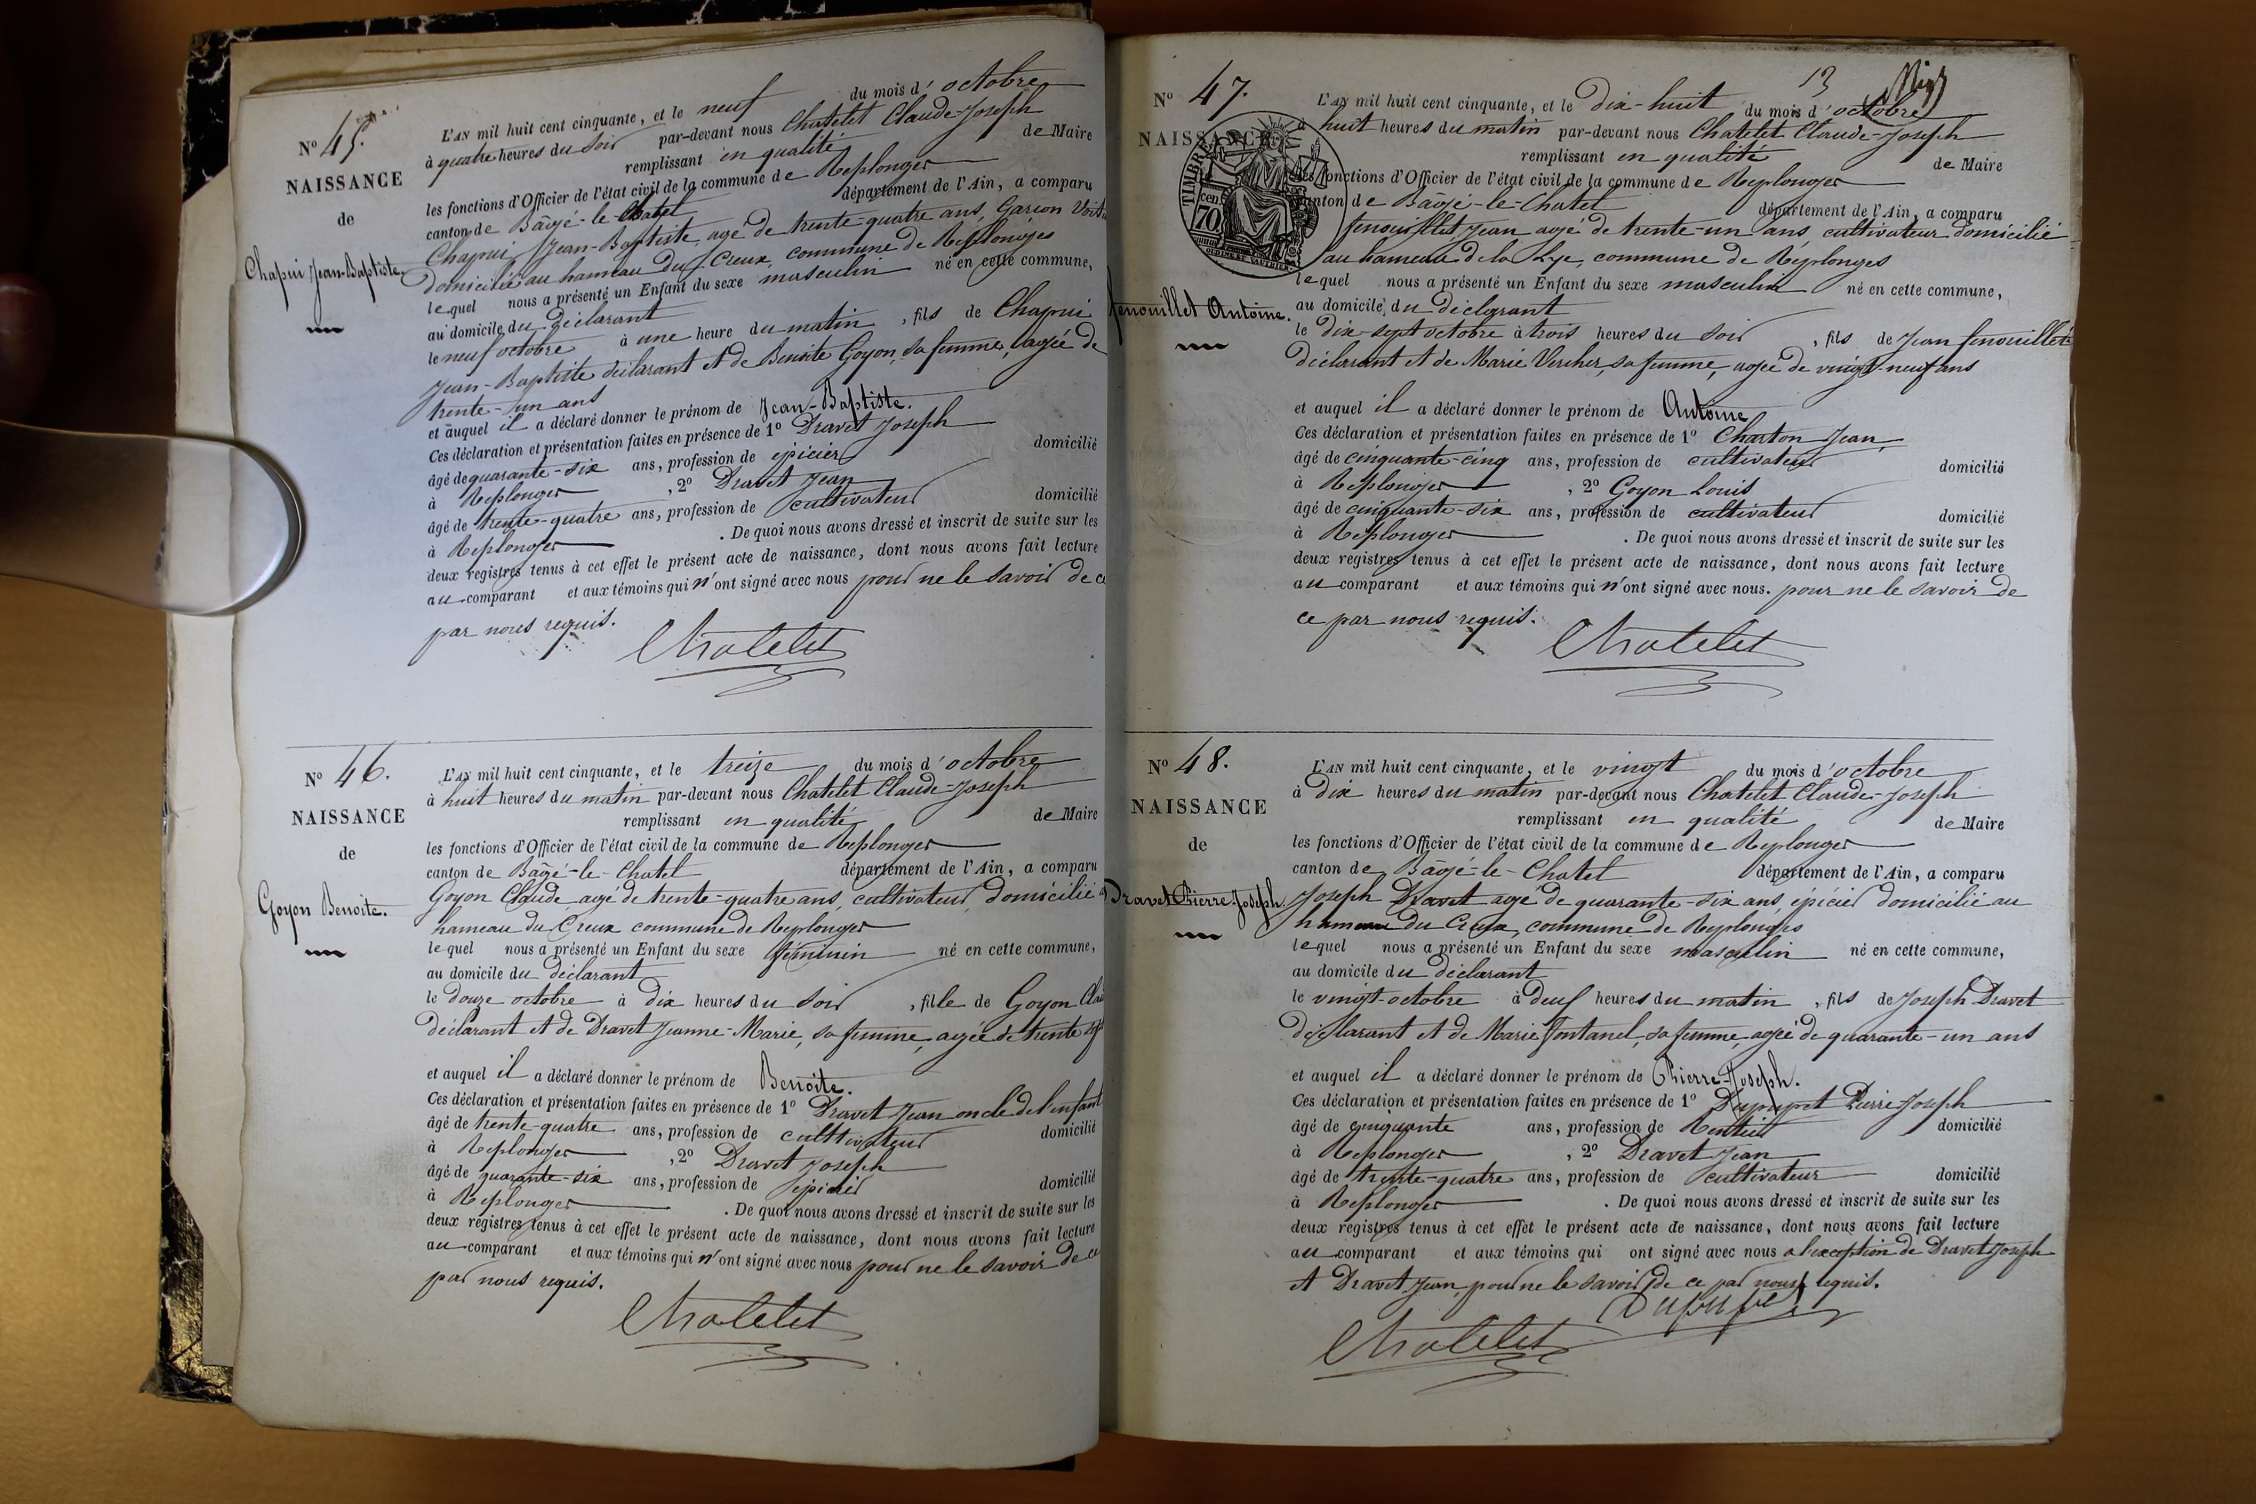 N° 45.
NAISSANCE
de
Chapui Jean-Baptiste.
L'AN mil huit cent cinquante, et le neuf du mois d'octobre
à quatre heures du soir par-devant nous Chatelet Claude-Joseph
remplissant en qualité de Maire
les fonctions d'Officier de l'état civil de la commune de Replonges
canton de Bâgé-le-Chatel département de l'Ain, a comparu
Chapui Jean-Baptiste, agé de trente-quatre ans, Garçon
domicilié au hameau du Creux, commune de Replonges
lequel nous a présenté un Enfant du sexe masculin né en cette commune,
au domicile du Déclarant
le neuf octobre à une heure du matin, fils de Chapui
Jean-Baptiste déclarant et de Benoite Goyon, sa femme, agée de
trente-un ans
et auquel il a déclaré donner le prénom de Jean-Baptiste.
Ces déclaration et présentation faites en présence de 1° Dravet Joseph
âgé de quarante-six ans, profession de épicier domicilié
à Replonges, 2° Dravet Jean
âgé de trente-quatre ans, profession de cultivateur domicilié
à Replonges. De quoi nous avons dressé et inscrit de suite sur les
deux registres tenus à cet effet le présent acte de naissance, dont nous avons fait lecture
au comparant et aux témoins qui n'ont signé avec nous pour ne le savoir de ce
par nous requis.
Chatelet
N° 46.
NAISSANCE
de
Goyon Benoite.
L'AN mil huit cent cinquante, et le treize du mois d'octobre
à huit heures du matin par-devant nous Chatelet Claude-Joseph
remplissant en qualité de Maire
les fonctions d'Officier de l'état civil de la commune de Replonges
canton de Bâgé-le-Chatel département de l'Ain, a comparu
Goyon Claude, agé de trente-quatre ans, cultivateur, domicilié
hameau du Creux commune de Replonges
lequel nous a présenté un Enfant du sexe féminin né en cette commune,
au domicile du déclarant
le douze octobre à dix heures du soir, fille de Goyon
déclarant et de Dravet Jeanne-Marie, sa femme, agée de trente
et auquel il a déclaré donner le prénom de Benoite.
Ces déclaration et présentation faites en présence de 1° Dravet Jean oncle de l'enfant
âgé de trente-quatre ans, profession de cultivateur domicilié
à Replonges, 2° Dravet Joseph
âgé de quarante-six ans, profession de épicier domicilié
à Replonges. De quoi nous avons dressé et inscrit de suite sur les
deux registres tenus à cet effet le présent acte de naissance, dont nous avons fait lecture
au comparant et aux témoins qui n'ont signé avec nous pour ne le savoir de ce
par nous requis.
Chatelet
13
N° 47.
NAISSANCE
TIMBRE
cen 70
fenouillet Antoine.
L'AN mil huit cent cinquante, et le Dix-huit du mois d'octobre
à huit heures du matin par-devant nous Chatelet Claude-Joseph
remplissant en qualité de Maire
les fonctions d'Officier de l'état civil de la commune de Replonges
canton de Bâgé-le-Chatel département de l'Ain, a comparu
fenouillet Jean agé de trente-un ans, cultivateur domicilié
au hameau de la Lye, commune de Replonges
lequel nous a présenté un Enfant du sexe masculin né en cette commune,
au domicile du déclarant
le Dix-sept octobre à trois heures du soir, fils de Jean fenouillet
déclarant et de Marie Vercher, sa femme, agée de vingt-neuf ans
et auquel il a déclaré donner le prénom de Antoine
Ces déclaration et présentation faites en présence de 1° Charton Jean
âgé de cinquante-cinq ans, profession de cultivateur domicilié
à Replonges, 2° Goyon Louis
âgé de cinquante-six ans, profession de cultivateur domicilié
à Replonges. De quoi nous avons dressé et inscrit de suite sur les
deux registres tenus à cet effet le présent acte de naissance, dont nous avons fait lecture
au comparant et aux témoins qui n'ont signé avec nous. pour ne le savoir de
ce par nous requis.
Chatelet
N° 48.
NAISSANCE
de
Dravet Pierre-Joseph.
L'AN mil huit cent cinquante, et le vingt du mois d'octobre
à dix heures du matin par-devant nous Chatelet Claude-Joseph
remplissant en qualité de Maire
les fonctions d'Officier de l'état civil de la commune de Replonges
canton de Bâgé-le-Chatel département de l'Ain, a comparu
Joseph Dravet agé de quarante-six ans, épicier domicilié au
hameau du Creux, commune de Replonges
lequel nous a présenté un Enfant du sexe masculin né en cette commune,
au domicile du déclarant
le vingt-octobre à deux heures du matin, fils de Joseph Dravet
déclarant et de Marie Fontanel, sa femme, agée de quarante-un ans
et auquel il a déclaré donner le prénom de Pierre-Joseph.
Ces déclaration et présentation faites en présence de 1° Dupupet Pierre-Joseph
âgé de cinquante ans, profession de Rentier domicilié
à Replonges, 2° Dravet Jean
âgé de trente-quatre ans, profession de cultivateur domicilié
à Replonges. De quoi nous avons dressé et inscrit de suite sur les
deux registres tenus à cet effet le présent acte de naissance, dont nous avons fait lecture
au comparant et aux témoins qui ont signé avec nous a l'exception de Dravet Joseph
et Dravet Jean, pour ne le savoir, de ce par nous requis.
Dupupet
Chatelet